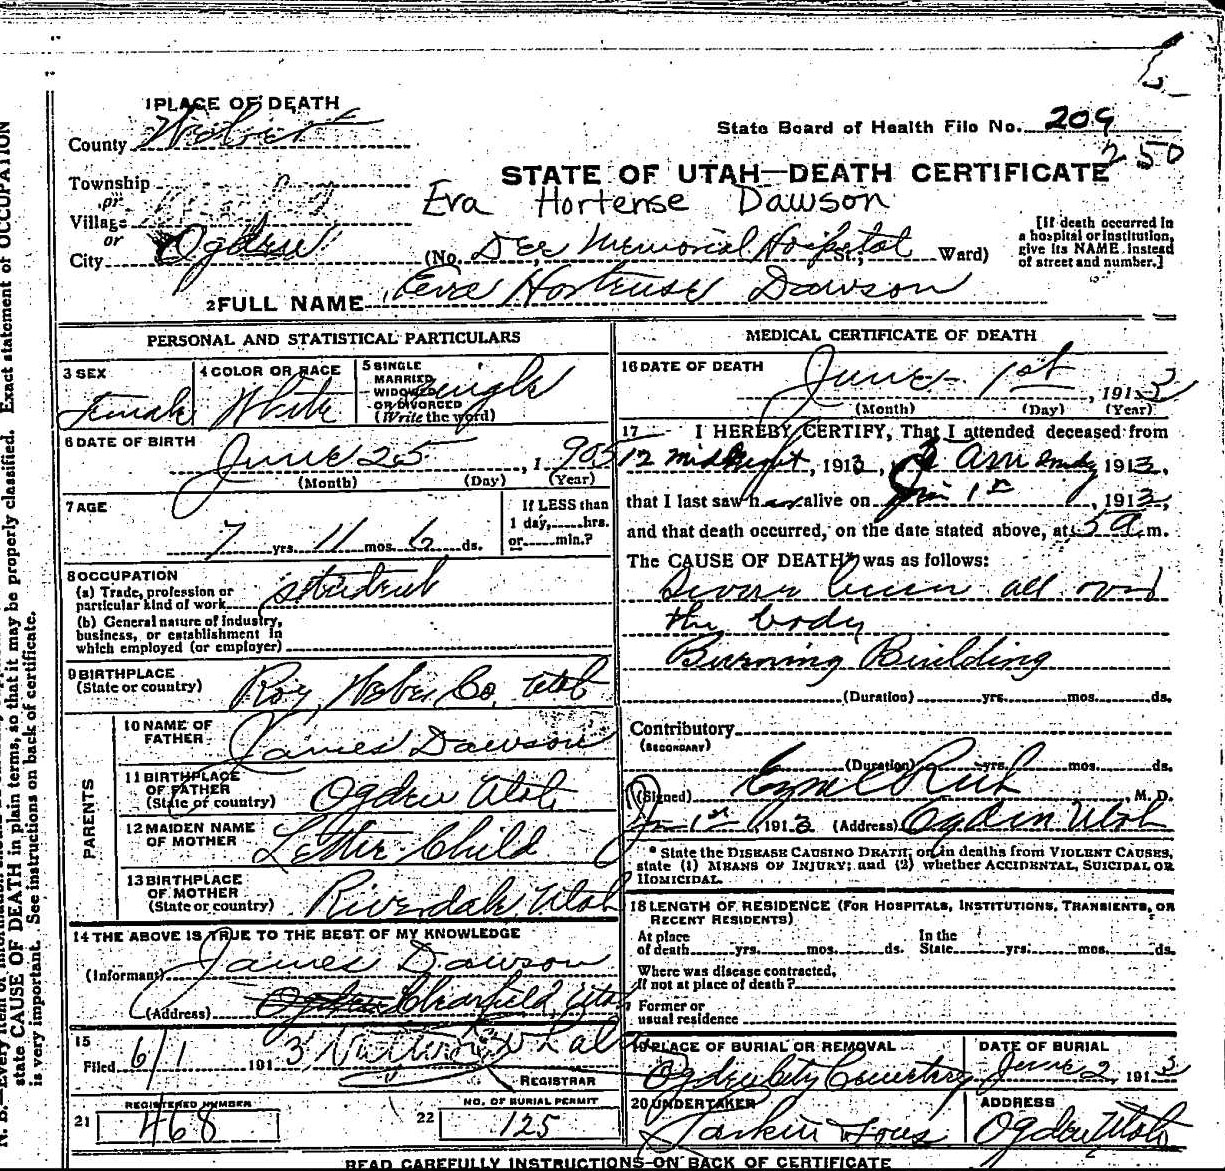 1 PLACE OF DEATH
County Weber
State Board of Health File No. 209
250
STATE OF UTAH—DEATH CERTIFICATE
Township
or
Village
or
City Ogden
Eva Hortense Dawson
(No. Dee Memorial Hospital St.; Ward)
[If death occurred in
a hospital or institution,
give its NAME instead
of street and number.]
2 FULL NAME Eva Hortense Dawson
PERSONAL AND STATISTICAL PARTICULARS
3 SEX
Female
4 COLOR OR RACE
White
5 SINGLE
MARRIED
WIDOWED
OR DIVORCED
(Write the word)
Single
6 DATE OF BIRTH
June 25, 1905
(Month) (Day) (Year)
7 AGE
7 yrs. 11 mos. 6 ds.
If LESS than
1 day, hrs.
or min.?
8 OCCUPATION
(a) Trade, profession or
particular kind of work student
(b) General nature of industry,
business, or establishment in
which employed (or employer)
9 BIRTHPLACE
(State or country) Roy, Weber Co, Utah
PARENTS
10 NAME OF
FATHER James Dawson
11 BIRTHPLACE
OF FATHER
(State or country) Ogden Utah
12 MAIDEN NAME
OF MOTHER Child
13 BIRTHPLACE
OF MOTHER
(State or country) Riverdale Utah
14 THE ABOVE IS TRUE TO THE BEST OF MY KNOWLEDGE
(Informant) James Dawson
(Address) Ogden Clearfield, Utah
15
Filed 6/1 1913
REGISTRAR
21 REGISTERED NUMBER
468
22 NO. OF BURIAL PERMIT
125
MEDICAL CERTIFICATE OF DEATH
16 DATE OF DEATH
June 1st, 1913
(Month) (Day) (Year)
17 I HEREBY CERTIFY, That I attended deceased from
12 midnight, 1913, 3 am 1913,
that I last saw her alive on Jun 1st, 1913,
and that death occurred, on the date stated above, at 5 a m.
The CAUSE OF DEATH* was as follows:
Severe burn all over
the body
Burning Building
(Duration) yrs. mos. ds.
Contributory
(SECONDARY)
(Duration) yrs. mos. ds.
(Signed) Rich, M. D.
Jun 1st, 1913 (Address) Ogden Utah
* State the DISEASE CAUSING DEATH; or, in deaths from VIOLENT CAUSES,
state (1) MEANS OF INJURY; and (2) whether ACCIDENTAL, SUICIDAL OR
HOMICIDAL.
18 LENGTH OF RESIDENCE (FOR HOSPITALS, INSTITUTIONS, TRANSIENTS, OR
RECENT RESIDENTS)
At place
of death yrs. mos. ds.
In the
State yrs. mos. ds.
Where was disease contracted,
if not at place of death?
Former or
usual residence
19 PLACE OF BURIAL OR REMOVAL
Ogden City Cemetery
DATE OF BURIAL
June 2, 1913
20 UNDERTAKER
Larkin Sons
ADDRESS
Ogden Utah
READ CAREFULLY INSTRUCTIONS ON BACK OF CERTIFICATE
state CAUSE OF DEATH in plain terms, so that it may be properly classified. Exact statement of OCCUPATION
is very important. See instructions on back of certificate.